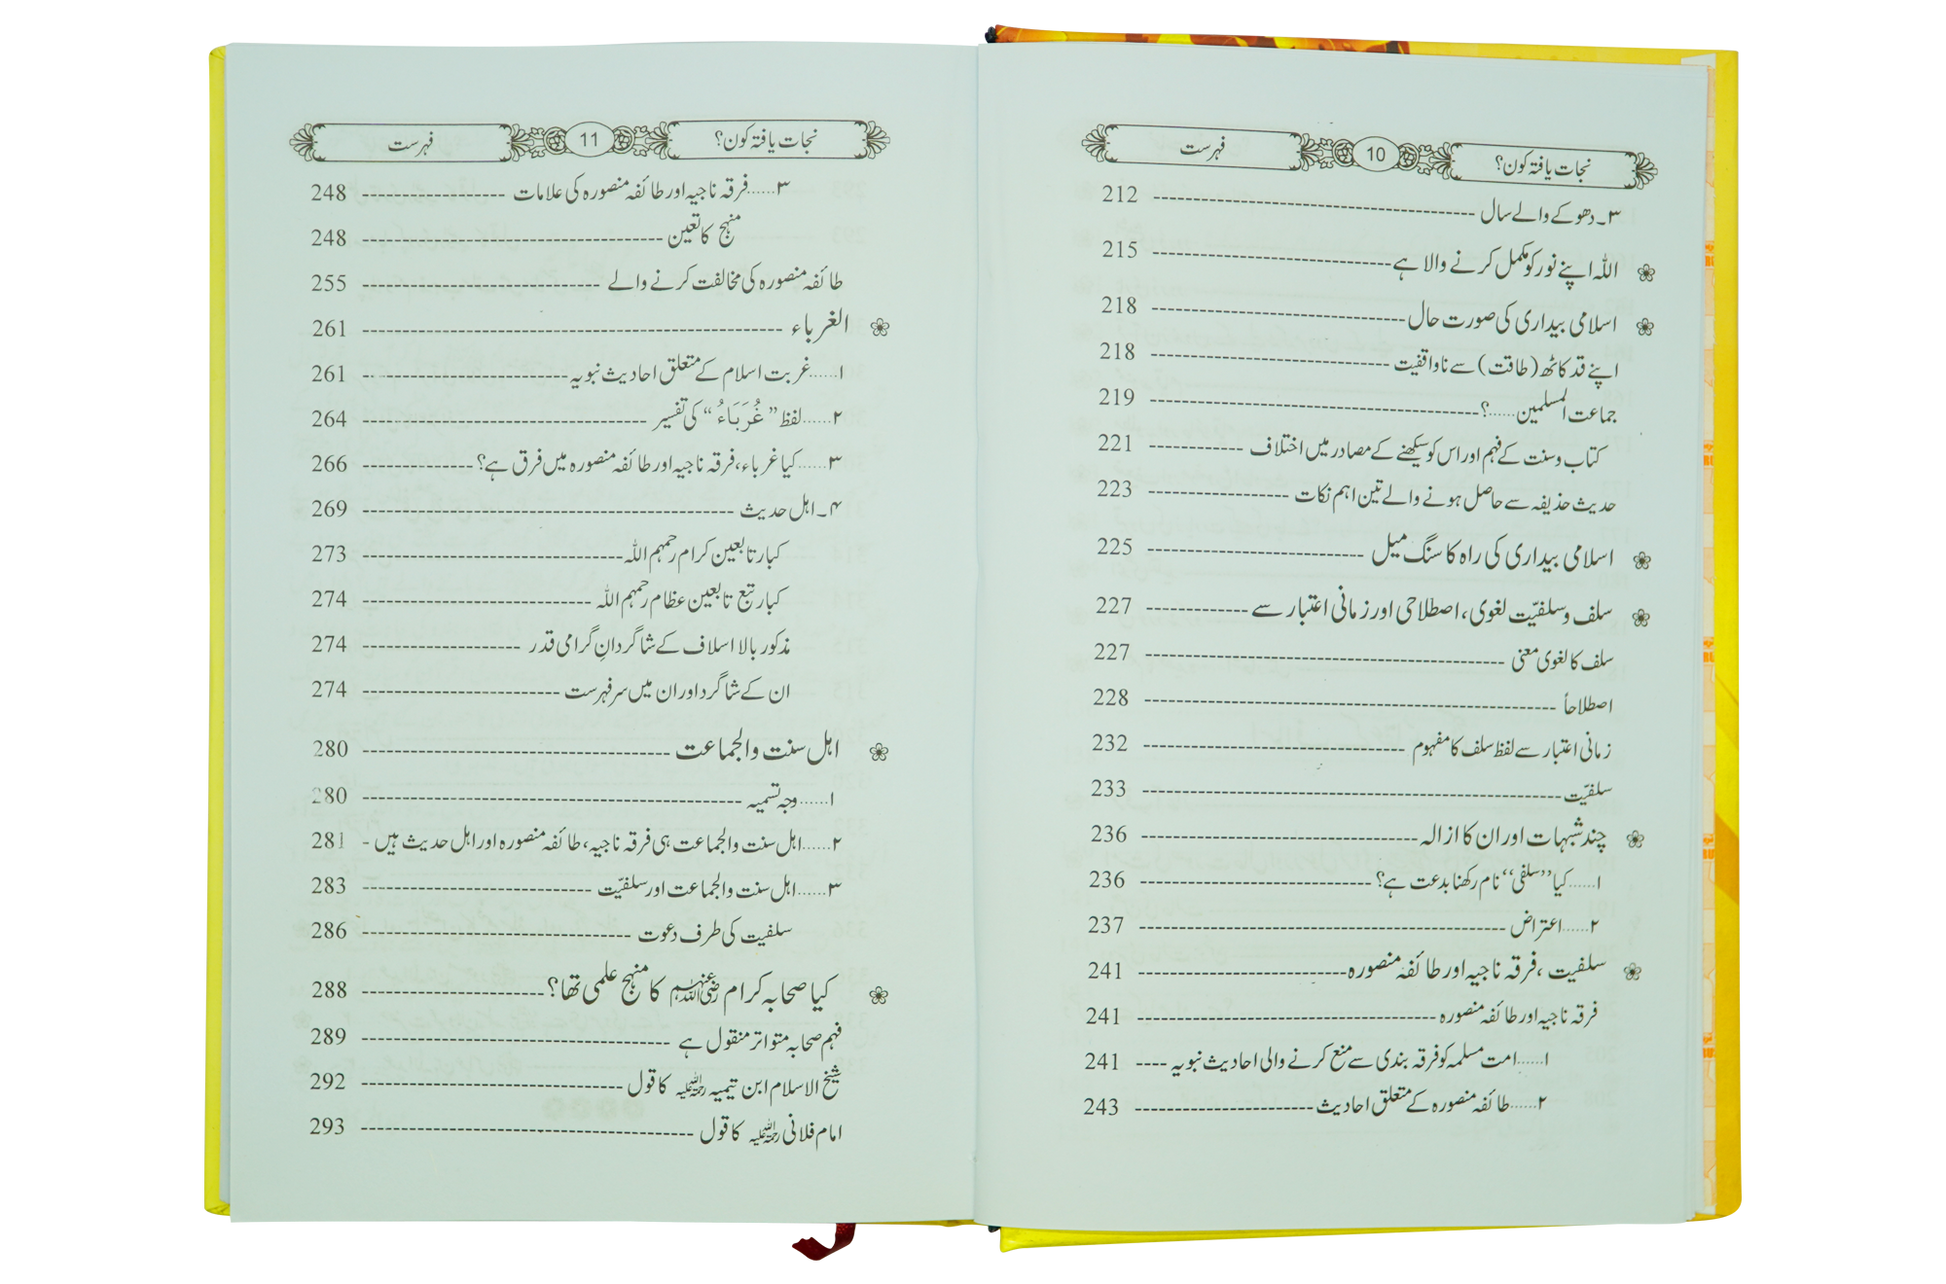 نجات یافتہ کون؟ 10 فہرست
۳۔دھوکے والے سال 212
اللہ اپنے نور کو مکمل کرنے والا ہے 215
اسلامی بیداری کی صورت حال 218
اپنے قد کاٹھ (طاقت) سے ناواقفیت 218
جماعت المسلمین......؟ 219
کتاب وسنت کے فہم اور اس کو سیکھنے کے مصادر میں اختلاف 221
حدیث حذیفہ سے حاصل ہونے والے تین اہم نکات 223
اسلامی بیداری کی راہ کا سنگ میل 225
سلف وسلفیّت لغوی، اصطلاحی اور زمانی اعتبار سے 227
سلف کا لغوی معنی 227
اصطلاحاً 228
زمانی اعتبار سے لفظ سلف کا مفہوم 232
سلفیّت 233
چند شبہات اور ان کا ازالہ 236
۱......کیا ’’سلفی‘‘ نام رکھنا بدعت ہے؟ 236
۲......اعتراض 237
سلفیت، فرقہ ناجیہ اور طائفہ منصورہ 241
فرقہ ناجیہ اور طائفہ منصورہ 241
۱......امت مسلمہ کو فرقہ بندی سے منع کرنے والی احادیث نبویہ 241
۲......طائفہ منصورہ کے متعلق احادیث 243
نجات یافتہ کون؟ 11 فہرست
۳......فرقہ ناجیہ اور طائفہ منصورہ کی علامات 248
منہج کا تعین 248
طائفہ منصورہ کی مخالفت کرنے والے 255
الغرباء 261
۱......غربت اسلام کے متعلق احادیث نبویہ 261
۲......لفظ ”غُرَبَاءُ“ کی تفسیر 264
۳......کیا غرباء، فرقہ ناجیہ اور طائفہ منصورہ میں فرق ہے؟ 266
۴۔اہل حدیث 269
کبار تابعین کرام رحمہم اللہ 273
کبار تبع تابعین عظام رحمہم اللہ 274
مذکور بالا اسلاف کے شاگردانِ گرامی قدر 274
ان کے شاگرد اور ان میں سرفہرست 274
اہل سنت والجماعت 280
۱......وجہ تسمیہ 280
۲......اہل سنت والجماعت ہی فرقہ ناجیہ، طائفہ منصورہ اور اہل حدیث ہیں 281
۳......اہل سنت والجماعت اور سلفیّت 283
سلفیت کی طرف دعوت 286
کیا صحابہ کرام رضی اللہ عنہم کا منہج علمی تھا؟ 288
فہم صحابہ متواتر منقول ہے 289
شیخ الاسلام ابن تیمیہ رحمۃ اللہ علیہ کا قول 292
امام فلانی رحمۃ اللہ علیہ کا قول 293